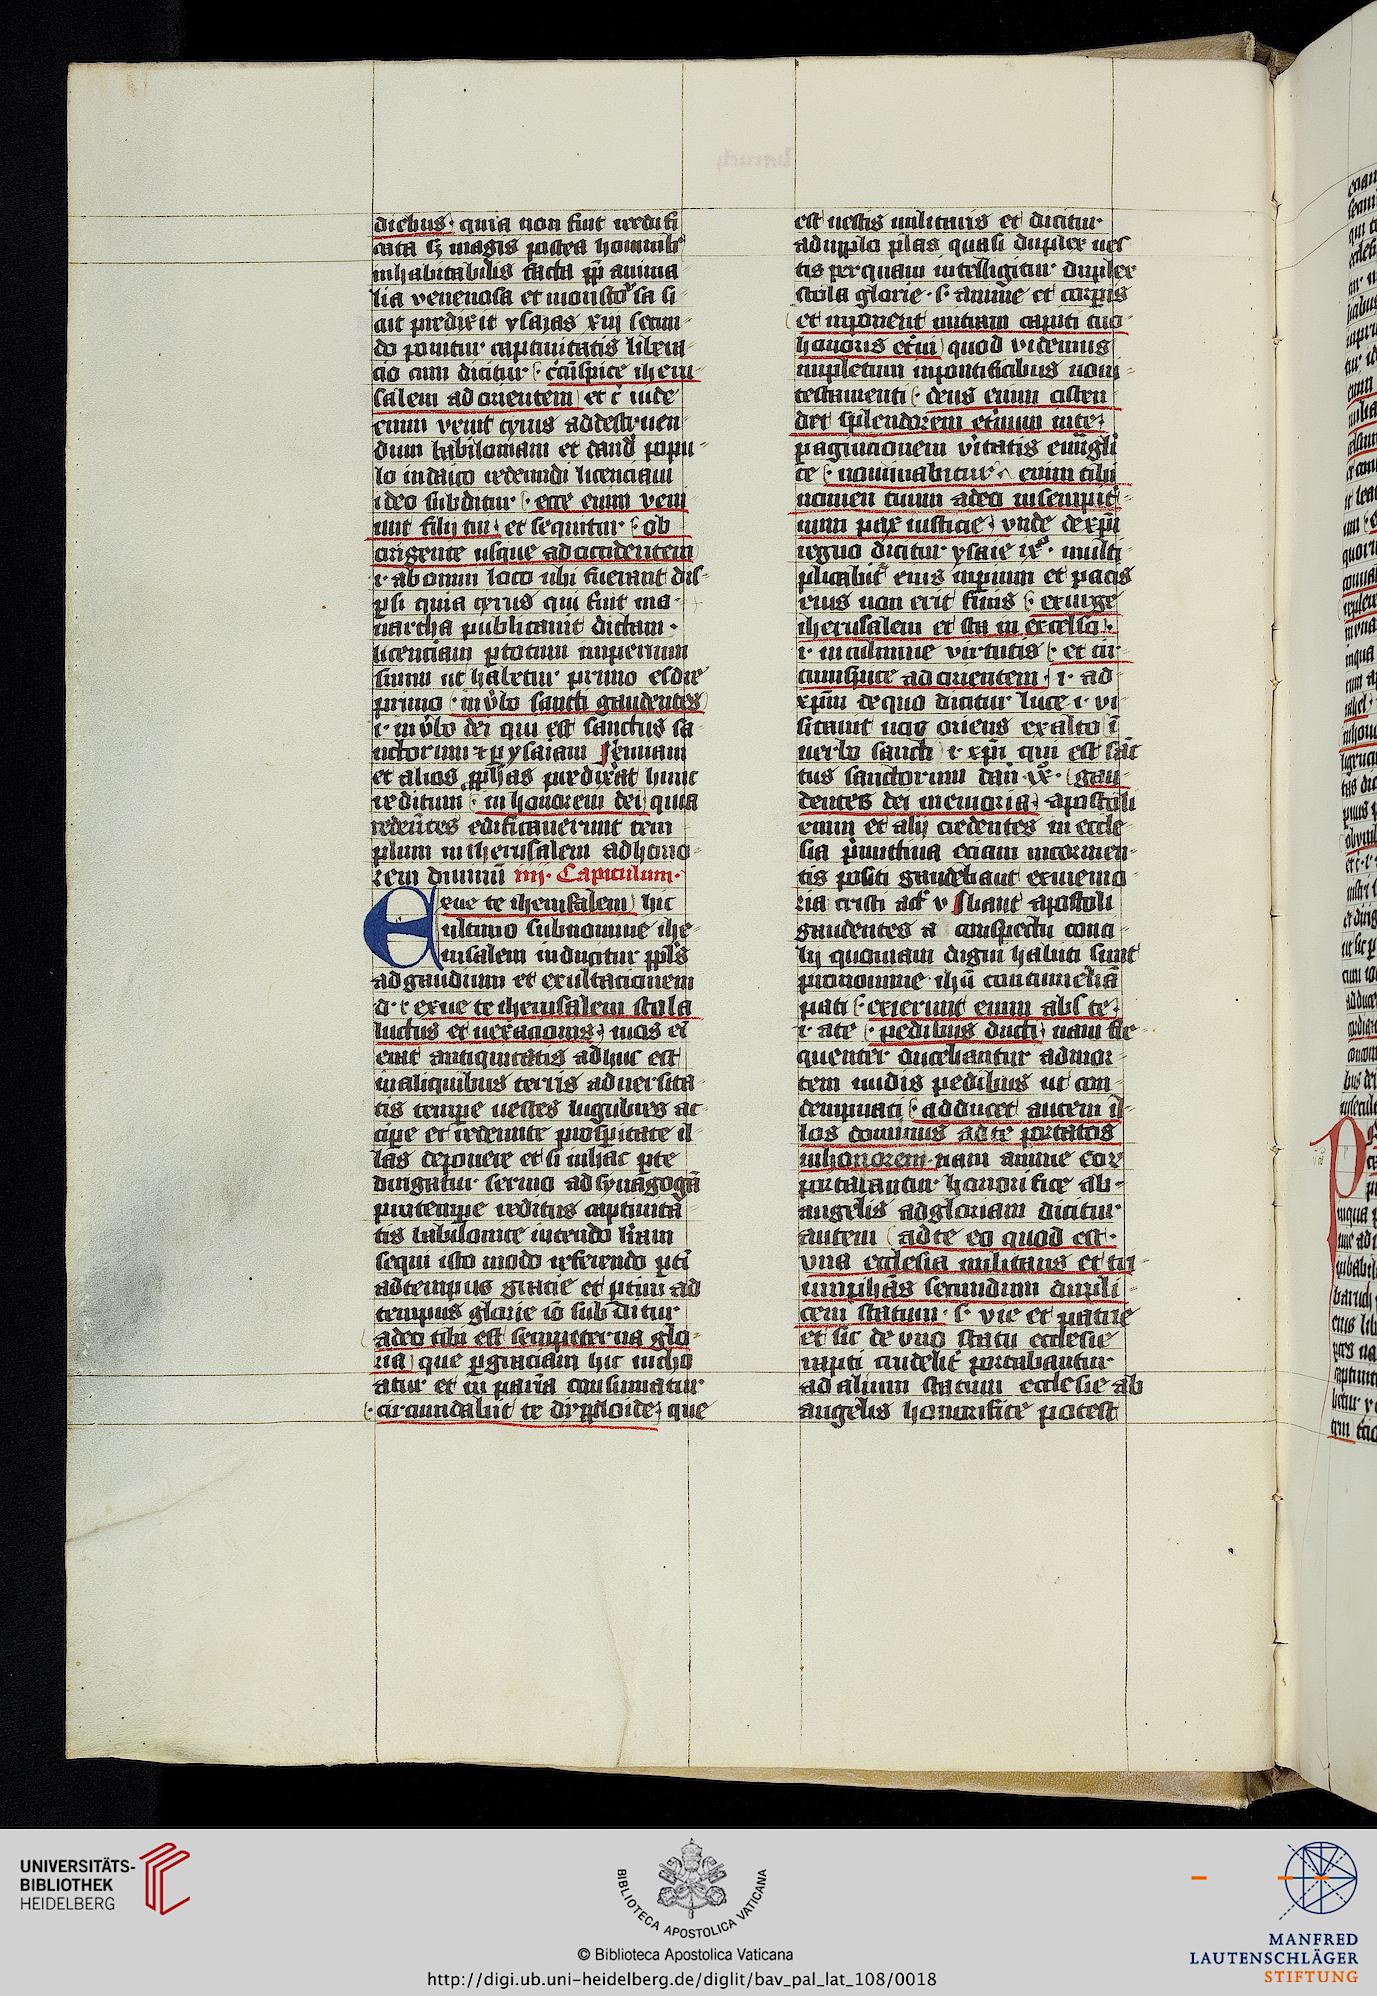 diebus · quia non fuit reedifi
cata sꝫ magis postea hominibꝰ
inhabitabilis facta ꝓp̄ anima
lia venenosa et monstͦsa si
cut predixit ysaias xiij secun
do ponitur captiuitatis libera
cio cum dicitur · cͬcūspice iheru
salem ad orientem et c̄ inde
enim venit cyrus addestruen
dum babiloniam et dand̄ popu
lo iudaico redeundi licenciam
ideo subditur · ecce enim veni
unt filij tui et sequitur · ob
origente usque ad occidentem
i · ab omni loco ubi fuerant dis
ꝑsi quia cyrus qui fuit mo
narcha publicauit dictam ·
licenciam ꝑ totum imperium
suum ut habetur primo esdre
primo · in v̄bo sancti gaudentes
i · in v̄bo dei qui est sanctus sa
nctorum ⁊ ꝑ ysaiam Jeremiam
et alios ꝓphās predixāt hunc
reditum · in honorem dei quia
redeūtes edificauerunt tem
plum in iherusalem ad hono
rem diuinū iiij · Capitulum ·
Exue te iherusalem hic
ultimo sub nomine ihe
rusalem inducitur ꝓpl̄s
ad gaudium et exultacionem
d · c exue te iherusalem stola
luctus et uexacionis mos em̄
erat antiquitatis adhuc est
in aliquibus terris aduersita
tis tempe uestes lugubres ac
cipe et redeunte prosperitate il
las deponere et si in hac ꝑte
dirigatur sermo ad synagogā
pro tempe reditus captiuita
tis babilonice incendo līam
sequi isto modo referendo ꝑti
ad tempus gracie et ꝑtim ad
tempus glorie iō subditur
adeo tibi est sempiterna glo
ria que ꝑ graciam hic incho
atur et in patria consumatur
· circundabit te dyploide que
est uestis militaris et dicitur
a dyplo plas quasi duplex ues
tis per quam intelligitur duplex
stola glorie · s · anime et corꝑis
et inponent mitram capiti tuo
honoris etͬni quod videmus
inpletum in pontificibus noui
testamenti · deus enim osten
det splendorem etͬnum in te
pagnicionem vͥtatis euāgli
ce · nominabitur enim tibi
nomen tuum adeo in sempit̄
num pax iusticie vnde de xpī
regno dicitur ysaie ixͦ · multi
plicabit̄ eius inperium et pacis
eius non erit finis · exurge
iherusalem et sta in excelso ·
i · in culmine virtutis · et cir
cumspice ad orientem · i · ad
xp̄m de quo dicitur luce i · vi
sitauit nos oriens ex alto ī
uerbo sancti i · xpī qui est sāc
tus sanctorum dan̄ · ixͦ · gau
dentes dei memoria apostoli
enim et alij credentes in eccle
sia p̄mitiua eciam in tormen
tis positi gaudebant ex memo
ria cristi act̄ v Jbant apostoli
gaudentes a conspectu conci
lij quoniam digni habiti sunt
pro nomine ihū contumeliā
pati · exierunt enim abs te
i · a te · pedibus ducti nam fre
quenter ducebantur ad mor
tem nudis pedibus ut con
dempnati · adducet autem il
los dominus ad te portatos
in honorem nam anime eorͦ
portabantur honorifice ab
angelis ad gloriam dicitur
autem ad te eo quod est ·
vna ecclesia militans et tri
umphās secundum dupli
cem statum · s · vie et patrie
et sic de vno statu ecclesie
rapti crudelit̄ portabantur
ad alium statum ecclesie ab
angelis honorifice potest
UNIVERSITÄTS-
BIBLIOTHEK
HEIDELBERG
BIBLIOTECA APOSTOLICA VATICANA
© Biblioteca Apostolica Vaticana
http://digi.ub.uni-heidelberg.de/diglit/bav_pal_lat_108/0018
MANFRED
LAUTENSCHLÄGER
STIFTUNG